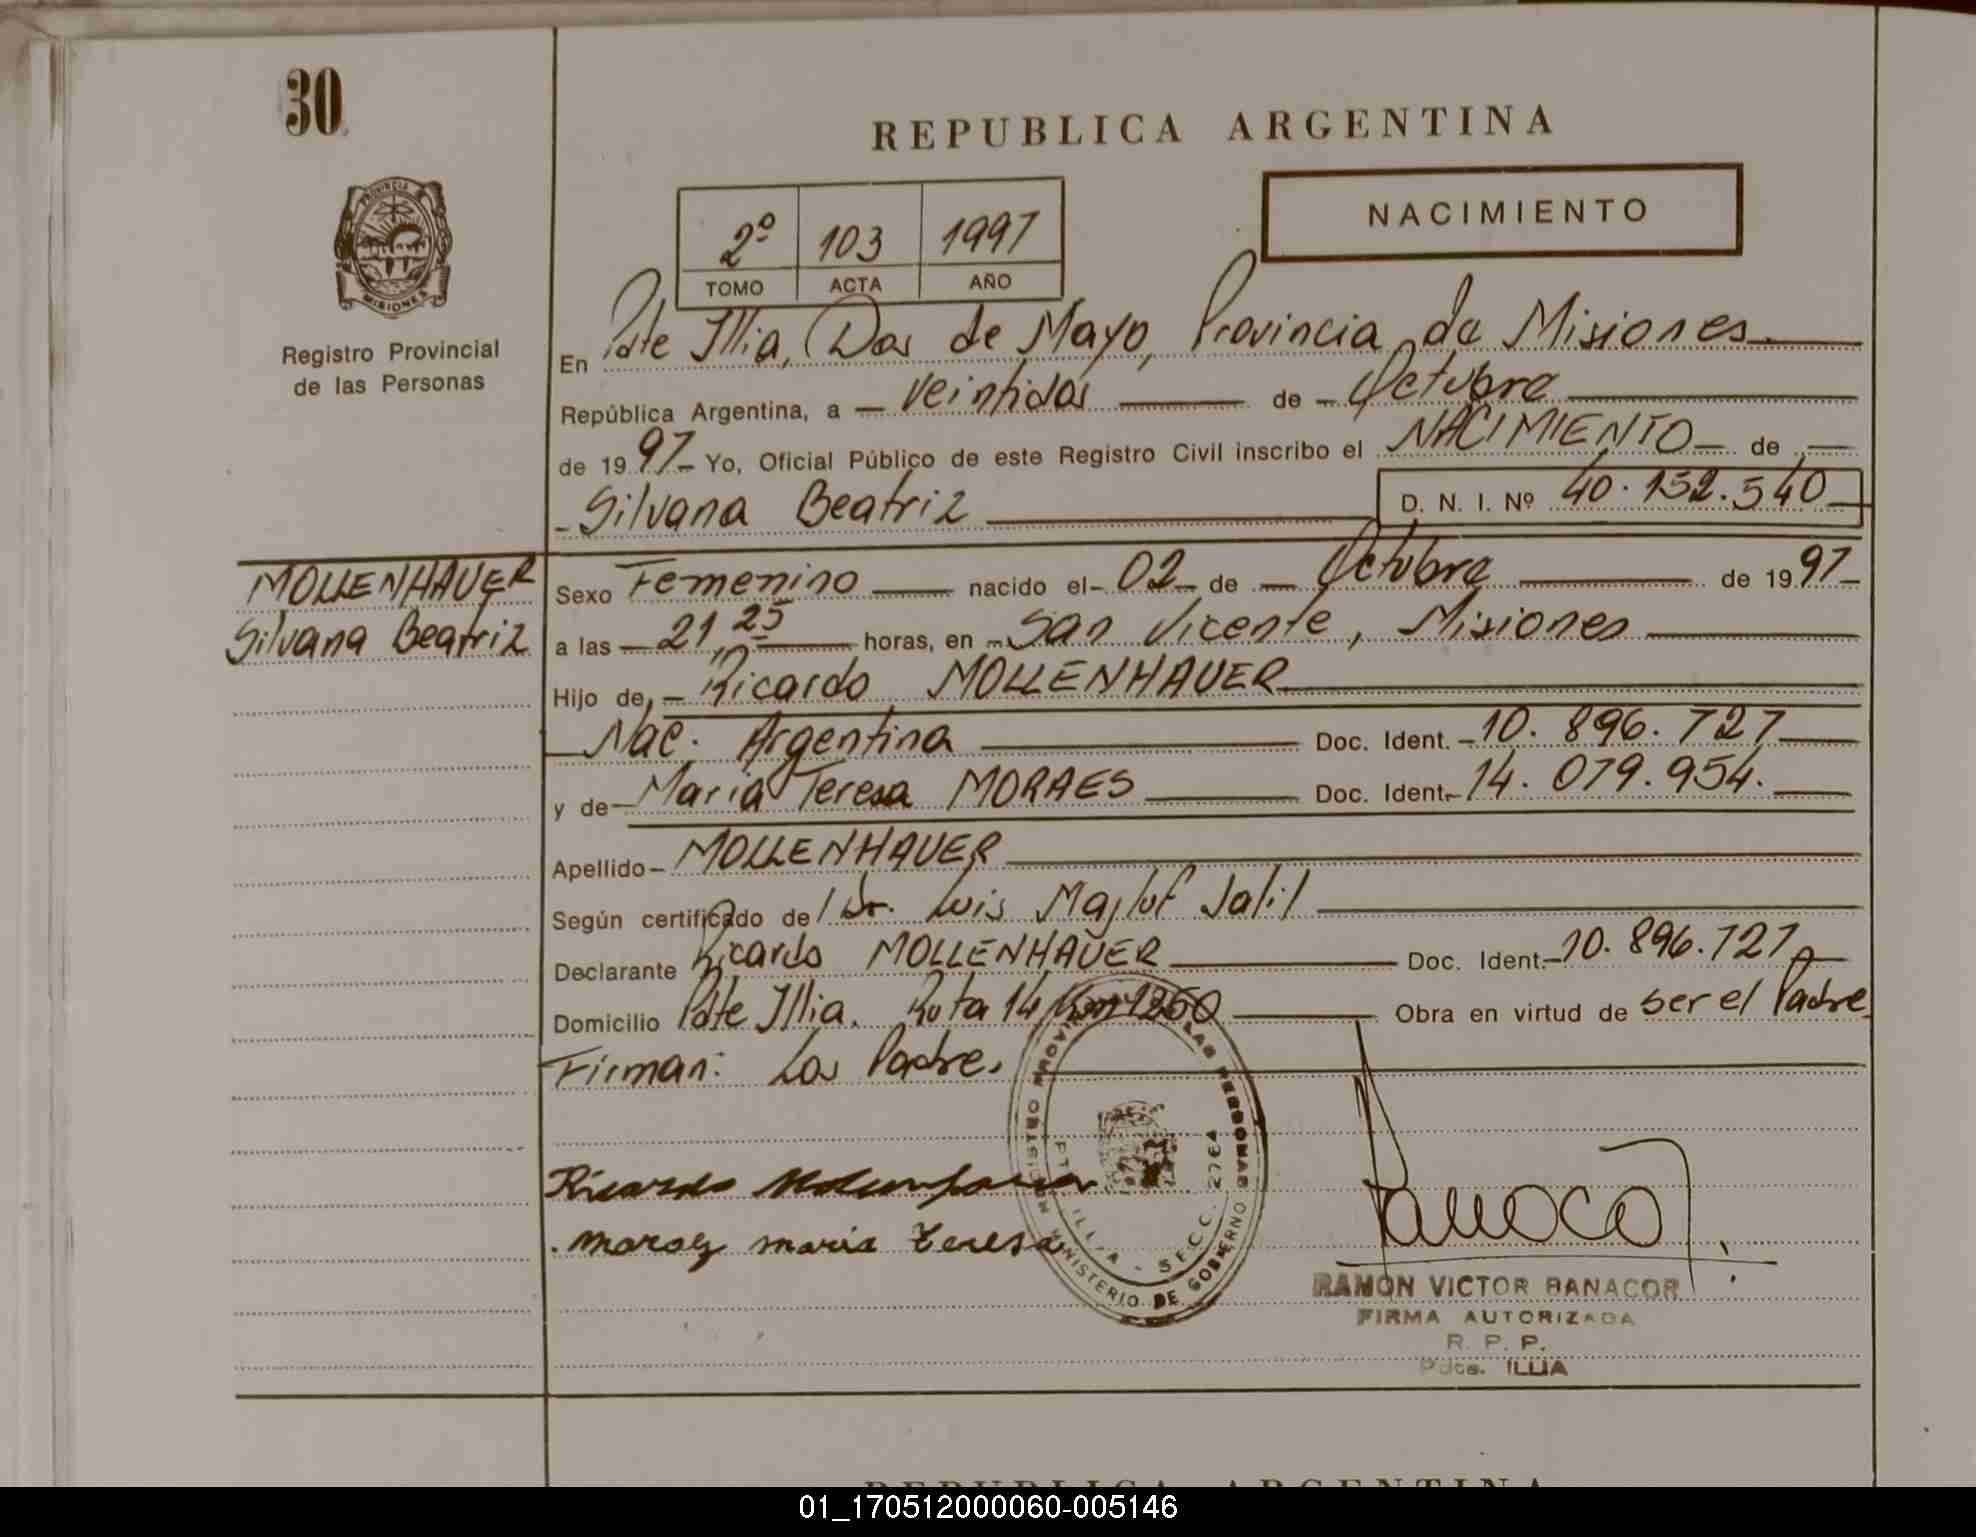 30
REPUBLICA ARGENTINA
NACIMIENTO
2º 103 1997
TOMO ACTA AÑO
PROVINCIA
MISIONES
Registro Provincial
de las Personas
En Pdte Illia, Dos de Mayo, Provincia de Misiones
República Argentina, a veintidos de Octubre
de 1997 Yo, Oficial Público de este Registro Civil inscribo el NACIMIENTO de
Silvana Beatriz D. N. I. Nº 40.152.540
MOLLENHAUER
Silvana Beatriz
Sexo Femenino nacido el 02 de Octubre de 1997
a las 21,25 horas, en San Vicente, Misiones
Hijo de Ricardo MOLLENHAUER
Nac. Argentina Doc. Ident. 10.896.727
y de Maria Teresa MORAES Doc. Ident. 14.079.954.
Apellido MOLLENHAUER
Según certificado de Dr. Luis Majluf Jalil
Declarante Ricardo MOLLENHAUER Doc. Ident. 10.896.727
Domicilio Pdte Illia. Ruta 14 Km 1260 Obra en virtud de ser el Padre
Firman: Los Padre.
REGISTRO PROVINCIAL DE LAS PERSONAS
MINISTERIO DE GOBIERNO
PTE. ILLIA - SECC. 2764
Ricardo
Moraez maria teresa
RAMON VICTOR BANACOR
FIRMA AUTORIZADA
R. P. P.
Pdte. ILLIA
REPUBLICA ARGENTINA
01_170512000060-005146